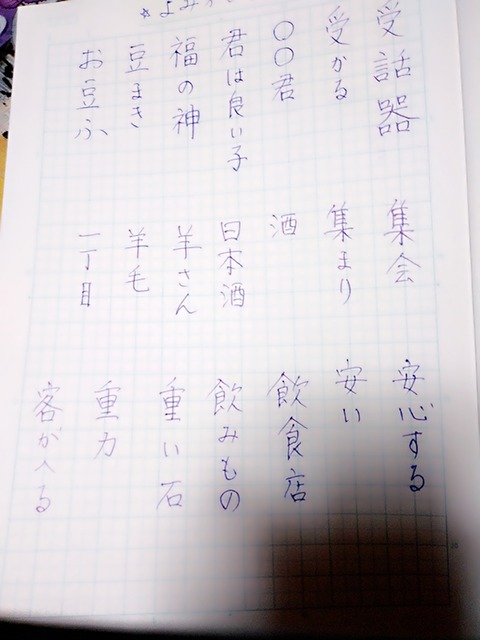 ☆よみ
受話器
受かる
〇〇君
君は良い子
福の神
豆まき
お豆ふ
集会
集まり
酒
日本酒
羊さん
羊毛
一丁目
安心する
安い
飲食店
飲みもの
重い石
重力
客が入る